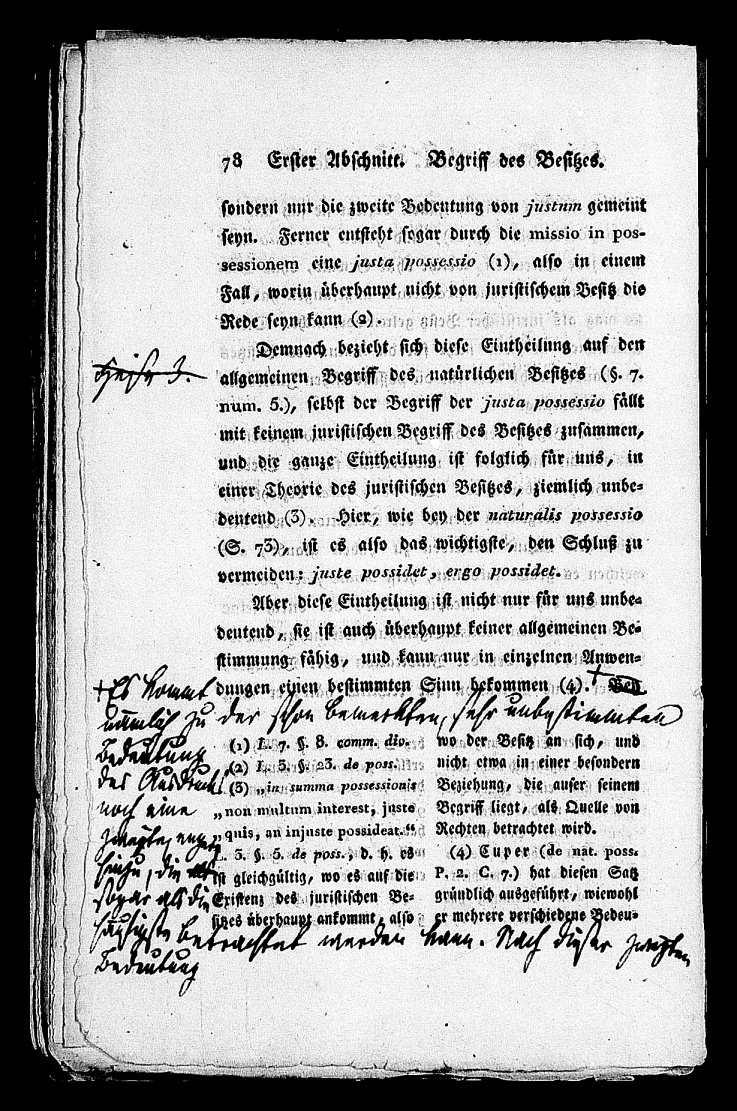 78 Erster Abschnitt. Begriff des Besitzes.
sondern nur die zweite Bedeutung von justum gemeint
seyn. Ferner entsteht sogar durch die missio in pos-
sessionem eine justa possessio (1), also in einem
Fall, worin überhaupt nicht von juristischem Besitz die
Rede seyn kann (2).
Demnach bezieht sich diese Eintheilung auf den
allgemeinen Begriff des natürlichen Besitzes (§. 7.
num. 5.), selbst der Begriff der justa possessio fällt
mit keinem juristischen Begriff des Besitzes zusammen,
und die ganze Eintheilung ist folglich für uns, in
einer Theorie des juristischen Besitzes, ziemlich unbe-
deutend (3). Hier, wie bey der naturalis possessio
(S. 73), ist es also das wichtigste, den Schluß zu
vermeiden: juste possidet, ergo possidet.
Aber diese Eintheilung ist nicht nur für uns unbe-
deutend, sie ist auch überhaupt keiner allgemeinen Be-
stimmung fähig, und kann nur in einzelnen Anwen-
dungen einen bestimmten Sinn bekommen (4).+
+ Es kommt
nämlich zu der schon bemerkten, sehr unbestimmten
Bedeutung
des Ausdrucks
noch eine
zweyte, engere
hinzu, die
sogar als die
häufigste betrachtet werden kann. Nach dieser zweyten
Bedeutung
(1) L. 7. §. 8. comm. div.
(2) L. 3. §. 23. de poss.
(3) „in summa possessionis
„non multum interest, juste
„quis, an injuste possideat.“
L. 3. §. 5. de poss., d. h. es
ist gleichgültig, wo es auf die
Existenz des juristischen Be-
sitzes überhaupt ankommt, also
wo der Besitz an sich, und
nicht etwa in einer besondern
Beziehung, die außer seinem
Begriff liegt, als Quelle von
Rechten betrachtet wird.
(4) Cuper (de nat. poss.
P. 2. C. 7.) hat diesen Satz
gründlich ausgeführt, wiewohl
er mehrere verschiedene Bedeu-